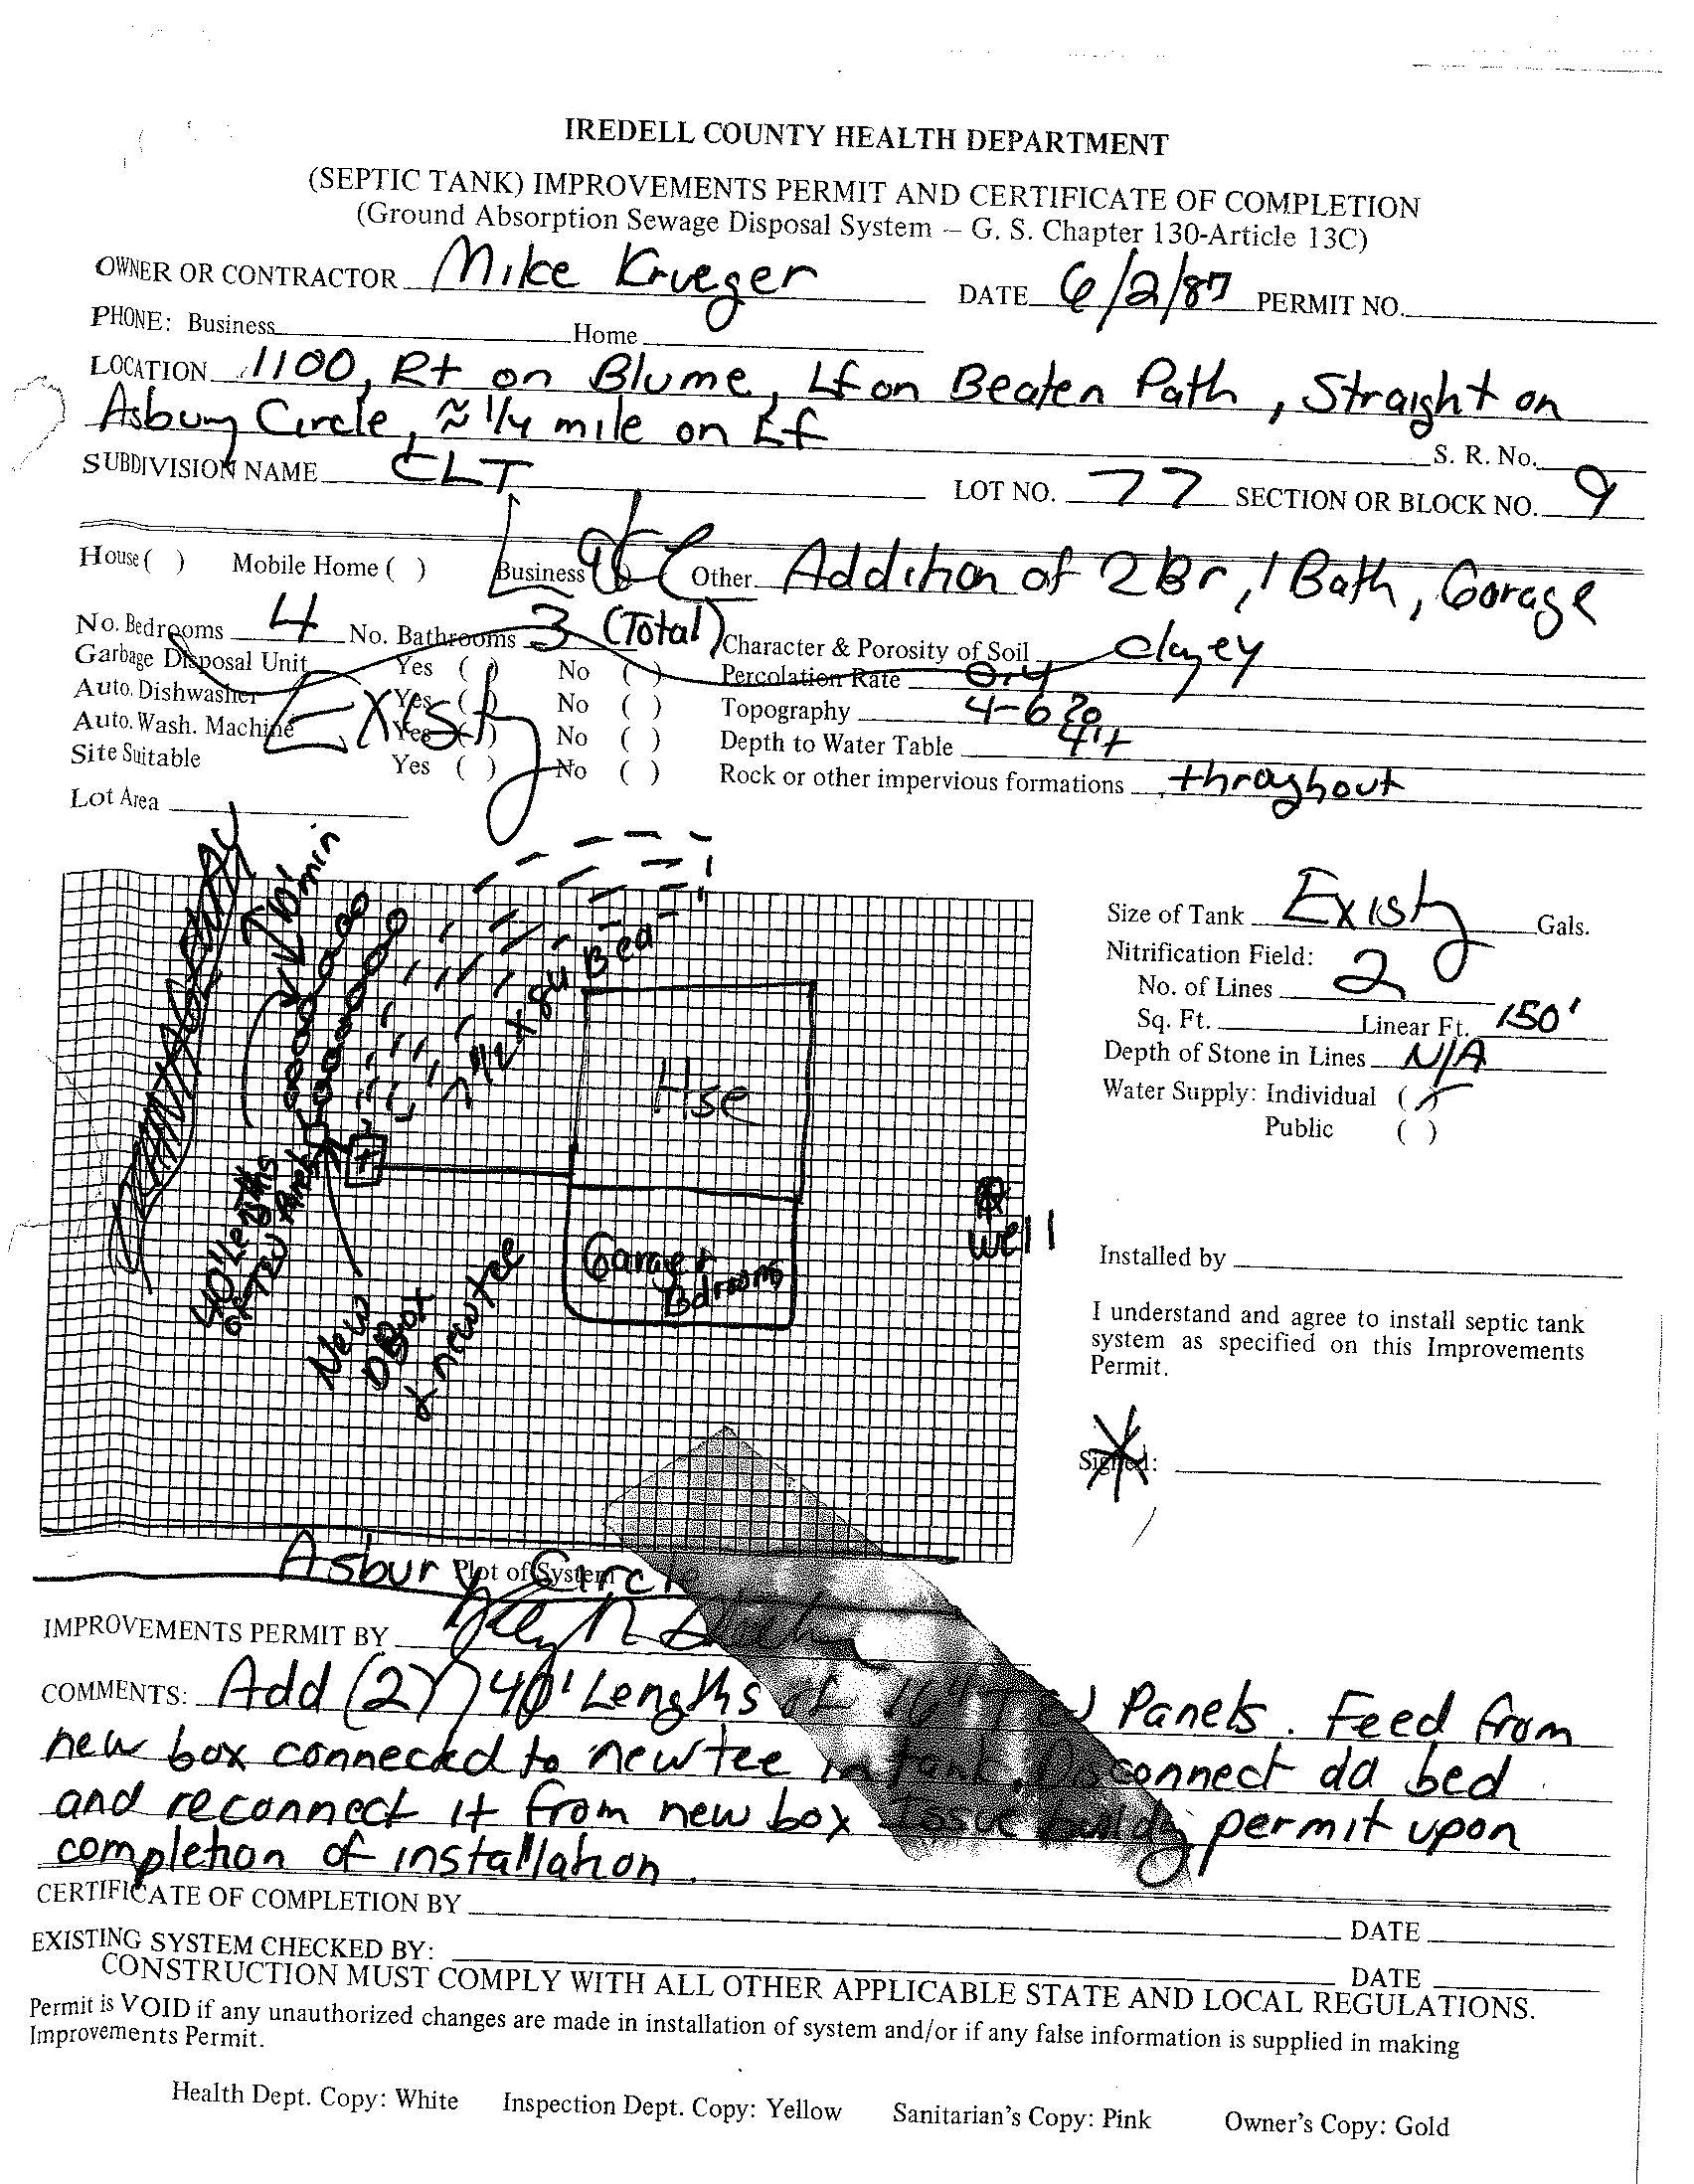 IREDELL COUNTY HEALTH DEPARTMENT
(SEPTIC TANK) IMPROVEMENTS PERMIT AND CERTIFICATE OF COMPLETION
(Ground Absorption Sewage Disposal System – G. S. Chapter 130-Article 13C)
OWNER OR CONTRACTOR Mike Krueger DATE 6/2/87 PERMIT NO.
PHONE: Business Home
LOCATION 1100, Rt on Blume, Lf on Beaten Path, Straight on
Asbury Circle, ≈ 1/4 mile on Lf
S. R. No.
SUBDIVISION NAME CLT LOT NO. 77 SECTION OR BLOCK NO. 9
House ( ) Mobile Home ( ) Business ( ) Other Addition of 2 Br, 1 Bath, Garage
No. Bedrooms 4 No. Bathrooms 3 (Total) Character & Porosity of Soil clayey
Garbage Disposal Unit Yes ( ) No ( ) Percolation Rate
Auto. Dishwasher Yes ( ) No ( ) Topography 4-6%
Auto. Wash. Machine Yes ( ) No ( ) Depth to Water Table 4'+
Site Suitable Yes ( ) No ( ) Rock or other impervious formations throghout
Existg
Lot Area
10' min
Bed
Hse
Garage +
Bdrooms
well
40' Lengths
of TSW Panel
New
DBox
& new tee
Size of Tank Existg Gals.
Nitrification Field:
No. of Lines 2
Sq. Ft. Linear Ft. 150'
Depth of Stone in Lines N/A
Water Supply: Individual (✓)
Public ( )
Installed by
I understand and agree to install septic tank
system as specified on this Improvements
Permit.
Signed:
Asbury Circle
Plot of System
IMPROVEMENTS PERMIT BY
COMMENTS: Add (2) 40' Lengths of 16" Panels. Feed from
new box connected to new tee in tank. Disconnect old bed
and reconnect it from new box Issue buildg permit upon
completion of installation.
CERTIFICATE OF COMPLETION BY DATE
EXISTING SYSTEM CHECKED BY: DATE
CONSTRUCTION MUST COMPLY WITH ALL OTHER APPLICABLE STATE AND LOCAL REGULATIONS.
Permit is VOID if any unauthorized changes are made in installation of system and/or if any false information is supplied in making
Improvements Permit.
Health Dept. Copy: White Inspection Dept. Copy: Yellow Sanitarian's Copy: Pink Owner's Copy: Gold